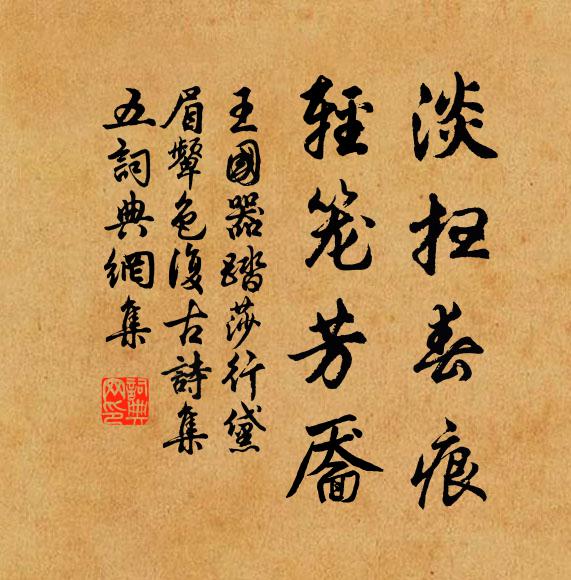 淡扫春痕
轻笼芳靥
王國器踏莎行黛
眉顰色復古詩集
五詞典網集
詞典網印